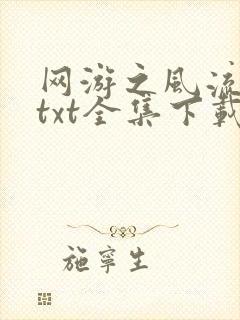 网游之风流
txt全集下载
施宁生